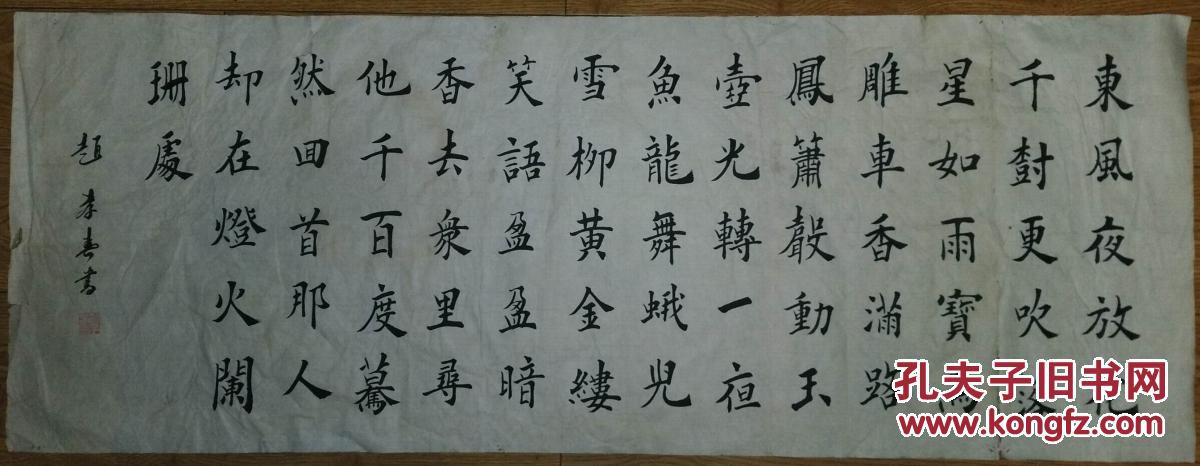 東風夜放花
千樹更吹落
星如雨寶馬
雕車香滿路
鳳簫聲動玉
壺光轉一夜
魚龍舞蛾兒
雪柳黃金縷
笑語盈盈暗
香去衆里尋
他千百度驀
然回首那人
却在燈火闌
珊處
趙孝書
孔夫子旧书网
www.kongfz.com